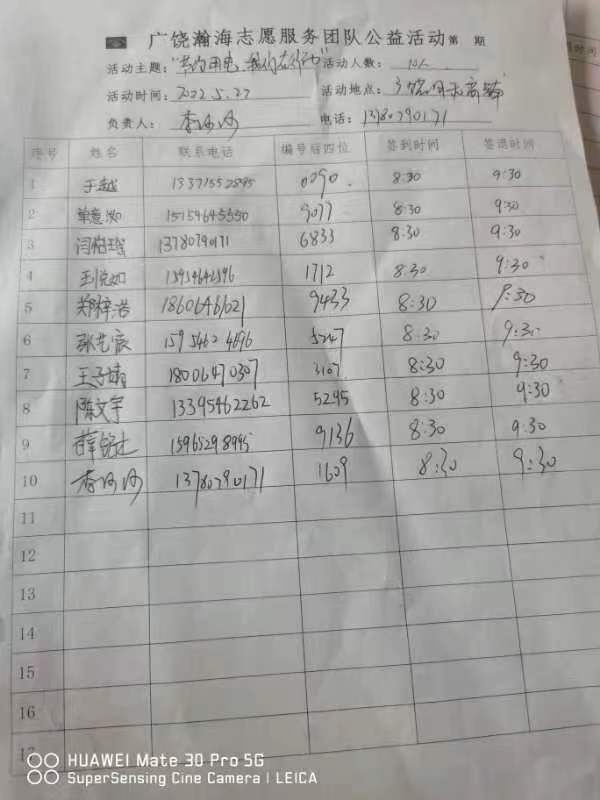 广饶瀚海志愿服务团队公益活动 第 期
活动主题："节约用电,我们在行动" 活动人数：10人
活动时间：2022.5.27 活动地点：广饶
负责人：李 电话：13780790171
序号 姓名 联系电话 编号后四位 签到时间 签退时间
1 于越 13371552895 0090 8:30 9:30
2 9077 8:30 9:30
3 闫 13780790171 6833 8:30 9:30
4 1712 8:30 9:30
5 郑梓浩 18606461621 9433 8:30 9:30
6 张艺宸 15954624696 5247 8:30 9:30
7 王子 18006470307 3107 8:30 9:30
8 陈文宇 13395462262 5295 8:30 9:30
9 薛 15965298995 9136 8:30 9:30
10 李 13780790171 1609 8:30 9:30
11
12
13
14
15
16
17
HUAWEI Mate 30 Pro 5G
SuperSensing Cine Camera | LEICA